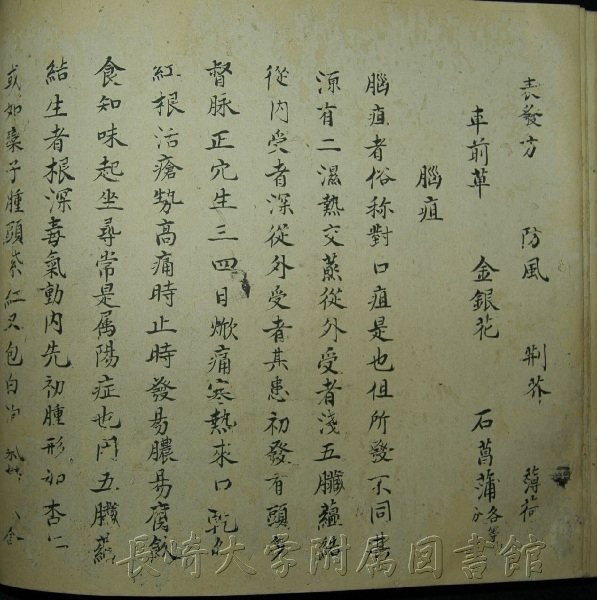 表發方　防風　荊芥　薄荷
車前草　金銀花　石菖蒲各等分
腦疽
腦疽者俗称對口疽是也但所發不同其
源有二濕熱交蒸從外受者淺五臟蘊結
從内受者深從外受者其患初發有頭多
督脉正穴生三四日焮痛寒熱求口乾
紅根活瘡勢高痛時止時發易膿易腐飲
食知味起坐尋常是属陽症也内五臟蘊
結生者根深毒氣動内先初腫形如杏仁
或如棗子腫頭紫紅又包白
長崎大学附属図書館